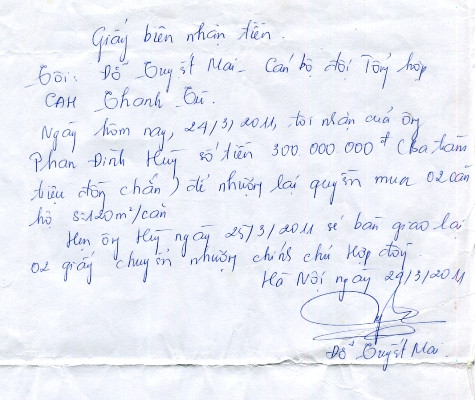 Giấy biên nhận tiền.
Tôi: Đỗ Quyết Mai - Cán bộ đội Tổng hợp
CAH Thanh Trì.
Ngày hôm nay, 24/3/2011, tôi nhận của ông
Phan Đình Huy số tiền 300 000 000đ (Ba trăm
triệu đồng chẵn) để nhượng lại quyền mua 02 căn
hộ S=120m²/căn
Hẹn ông Huy ngày 25/3/2011 sẽ bàn giao lại
02 giấy chuyển nhượng chính chủ Hợp đồng.
Hà Nội ngày 24/3/2011
Đỗ Quyết Mai